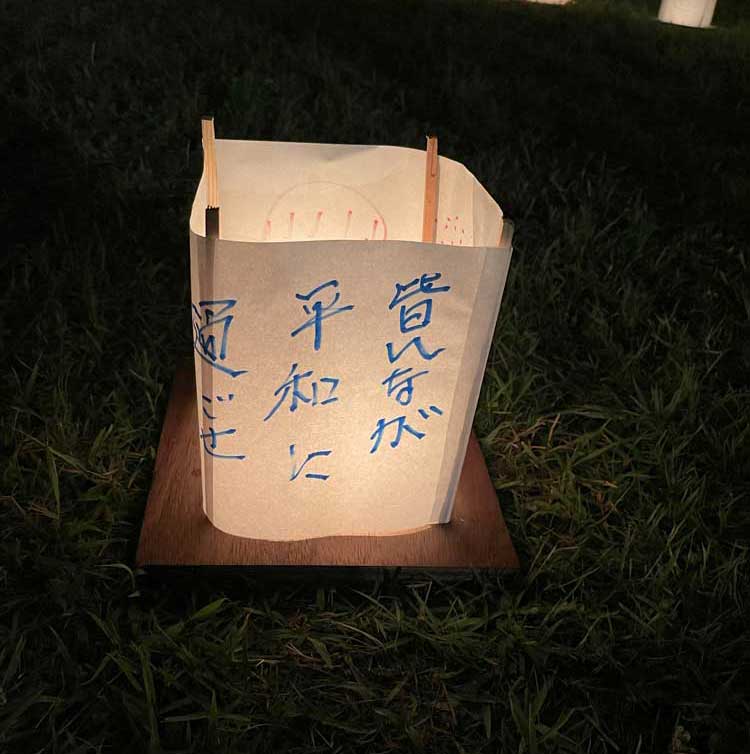 皆んなが
平和に
過ごせ